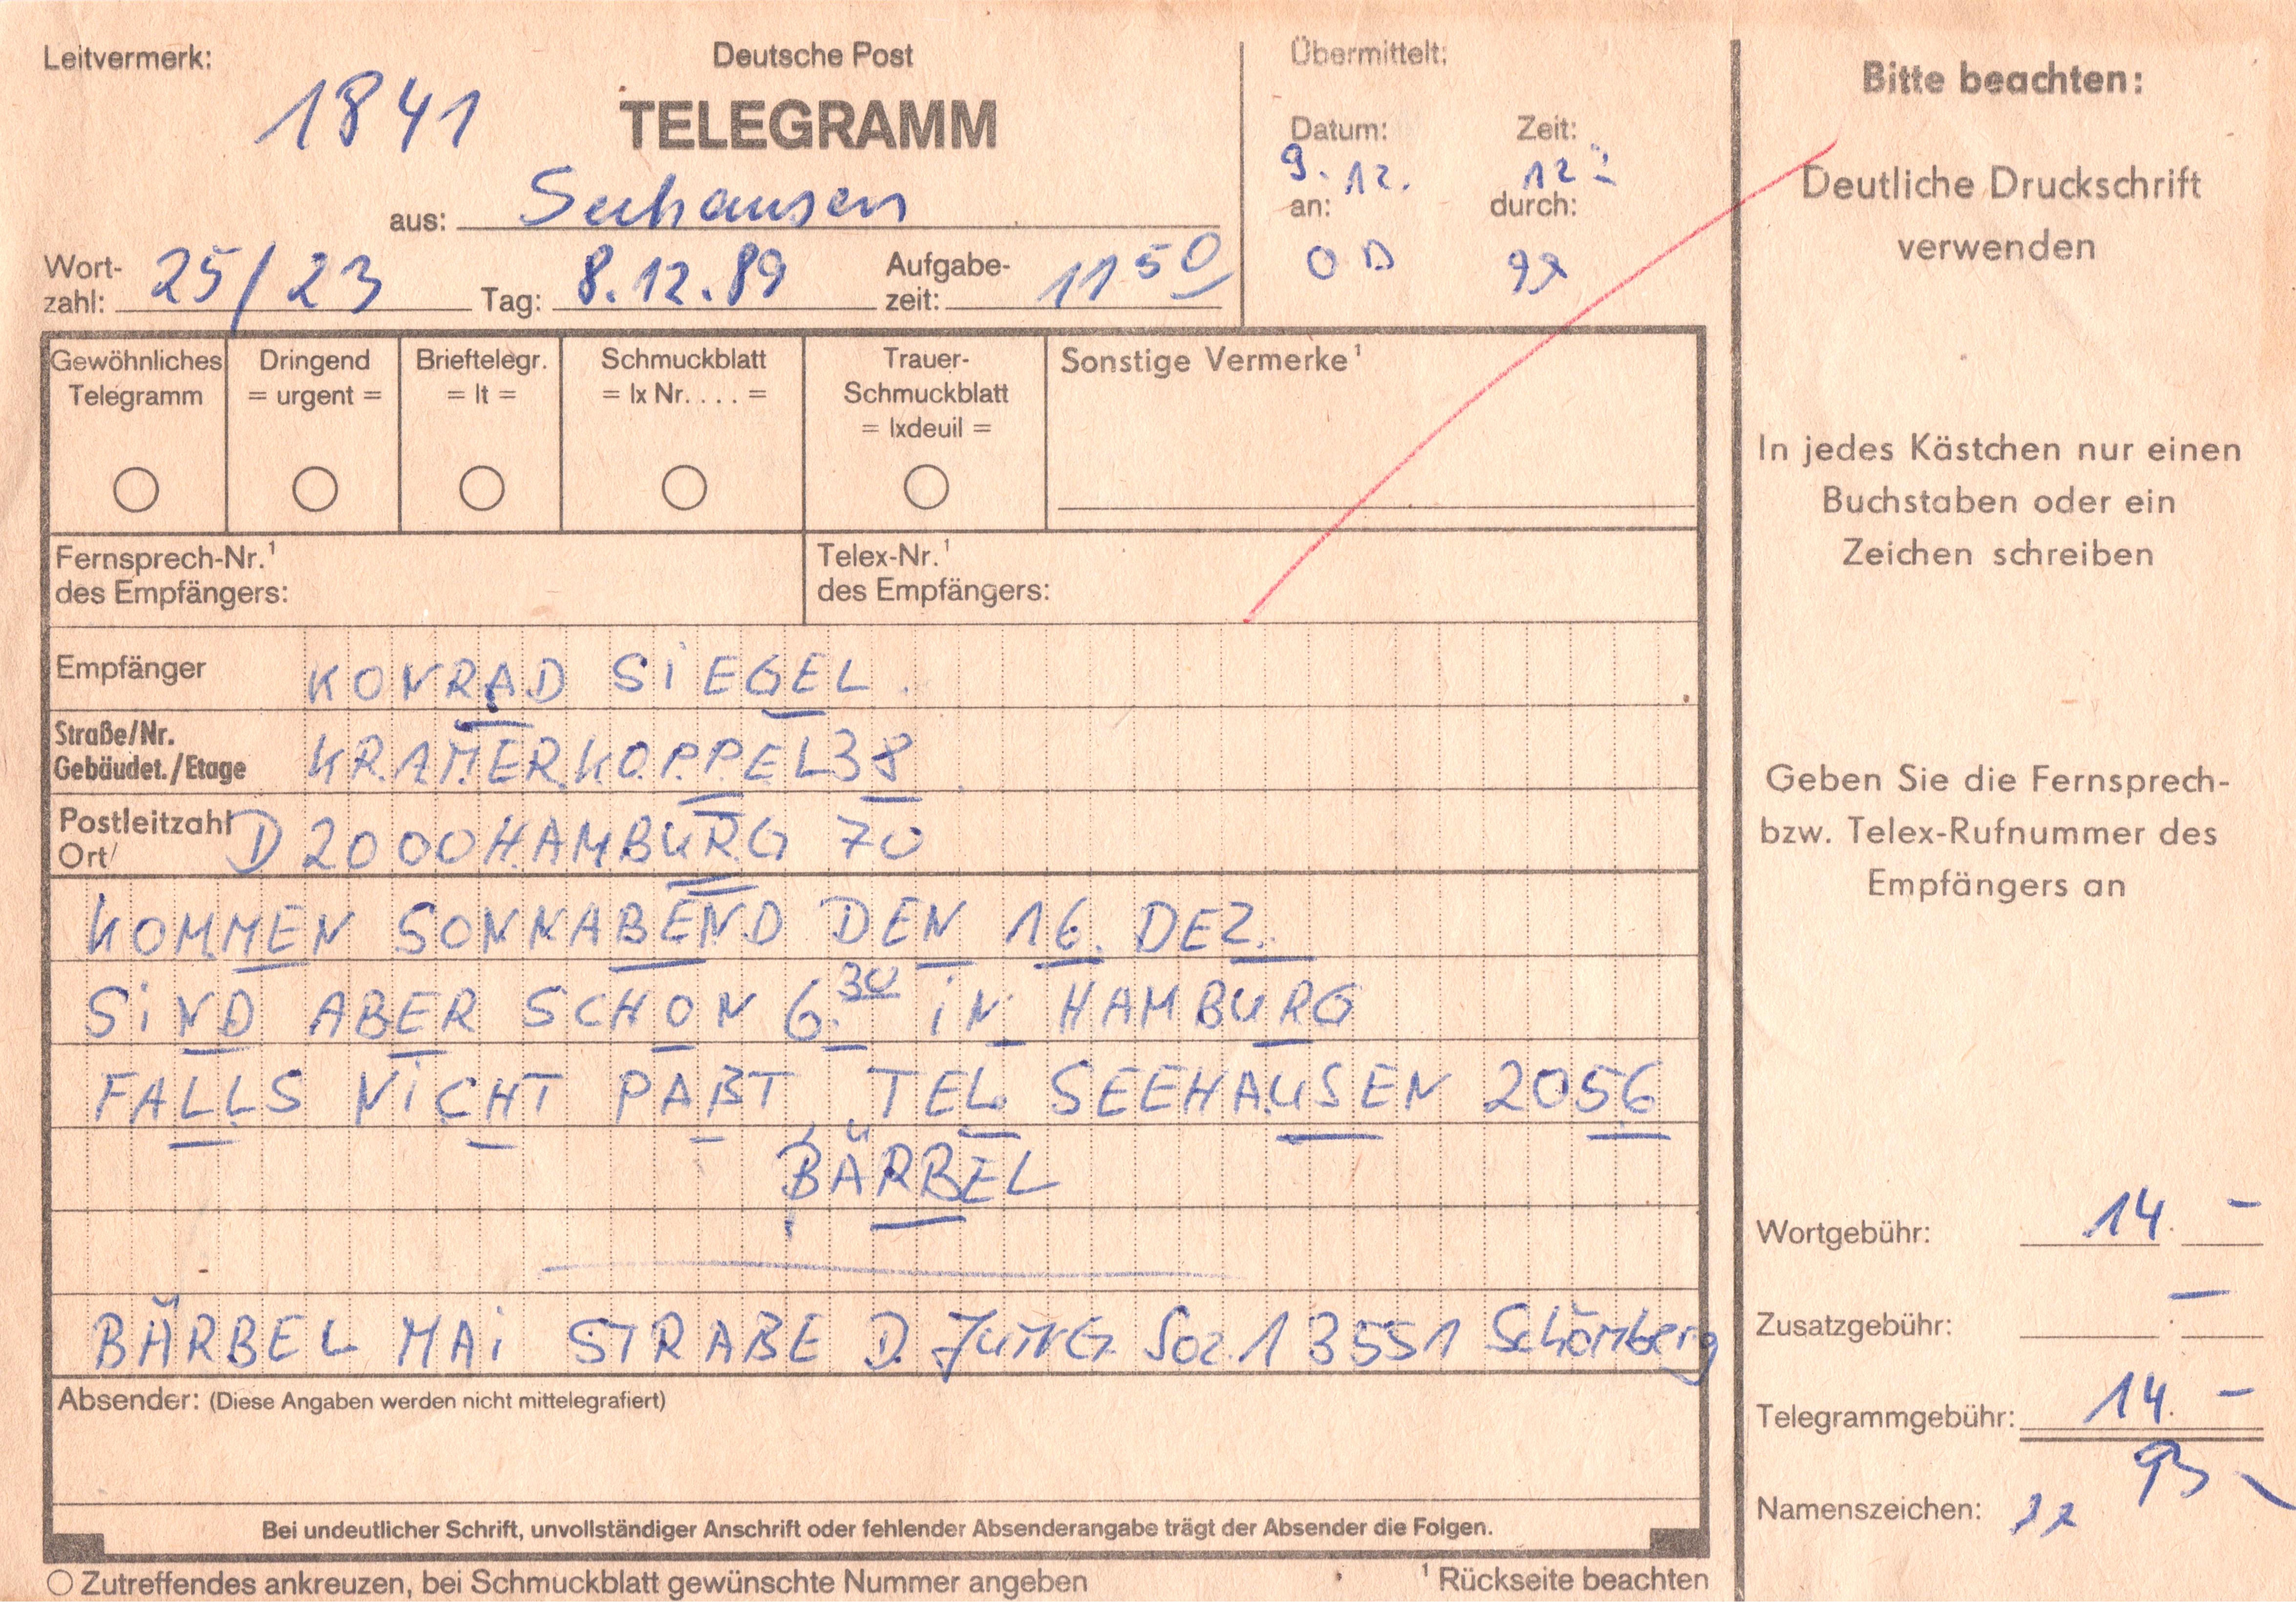 Leitvermerk:
1841
Deutsche Post
TELEGRAMM
aus: Seehausen
Wort-
zahl: 25/23
Tag: 8.12.89
Aufgabe-
zeit: 11 50
Übermittelt:
Datum: Zeit:
9. 12. 12
an: durch:
Gewöhnliches
Telegramm
Dringend
= urgent =
Brieftelegr.
= lt =
Schmuckblatt
= lx Nr. . . . =
Trauer-
Schmuckblatt
= lxdeuil =
Sonstige Vermerke¹
Fernsprech-Nr.¹
des Empfängers:
Telex-Nr.¹
des Empfängers:
Empfänger KONRAD SiEGEL.
Straße/Nr.
Gebäudet./Etage KRAMERKOPPEL 38
Postleitzahl
Ort D 2000 HAMBURG 70
KOMMEN SONNABEND DEN 16. DEZ.
SiND ABER SCHON 6.30 iN HAMBURG
FALLS NiCHT PAßT TEL. SEEHAUSEN 2056
BÄRBEL
BÄRBEL MAi STRAßE D. JUNG. Soz. 1 3551 Schönberg
Absender: (Diese Angaben werden nicht mittelegrafiert)
Bei undeutlicher Schrift, unvollständiger Anschrift oder fehlender Absenderangabe trägt der Absender die Folgen.
Zutreffendes ankreuzen, bei Schmuckblatt gewünschte Nummer angeben
¹ Rückseite beachten
Bitte beachten:
Deutliche Druckschrift
verwenden
In jedes Kästchen nur einen
Buchstaben oder ein
Zeichen schreiben
Geben Sie die Fernsprech-
bzw. Telex-Rufnummer des
Empfängers an
Wortgebühr: 14. –
Zusatzgebühr: –
Telegrammgebühr: 14. –
Namenszeichen: